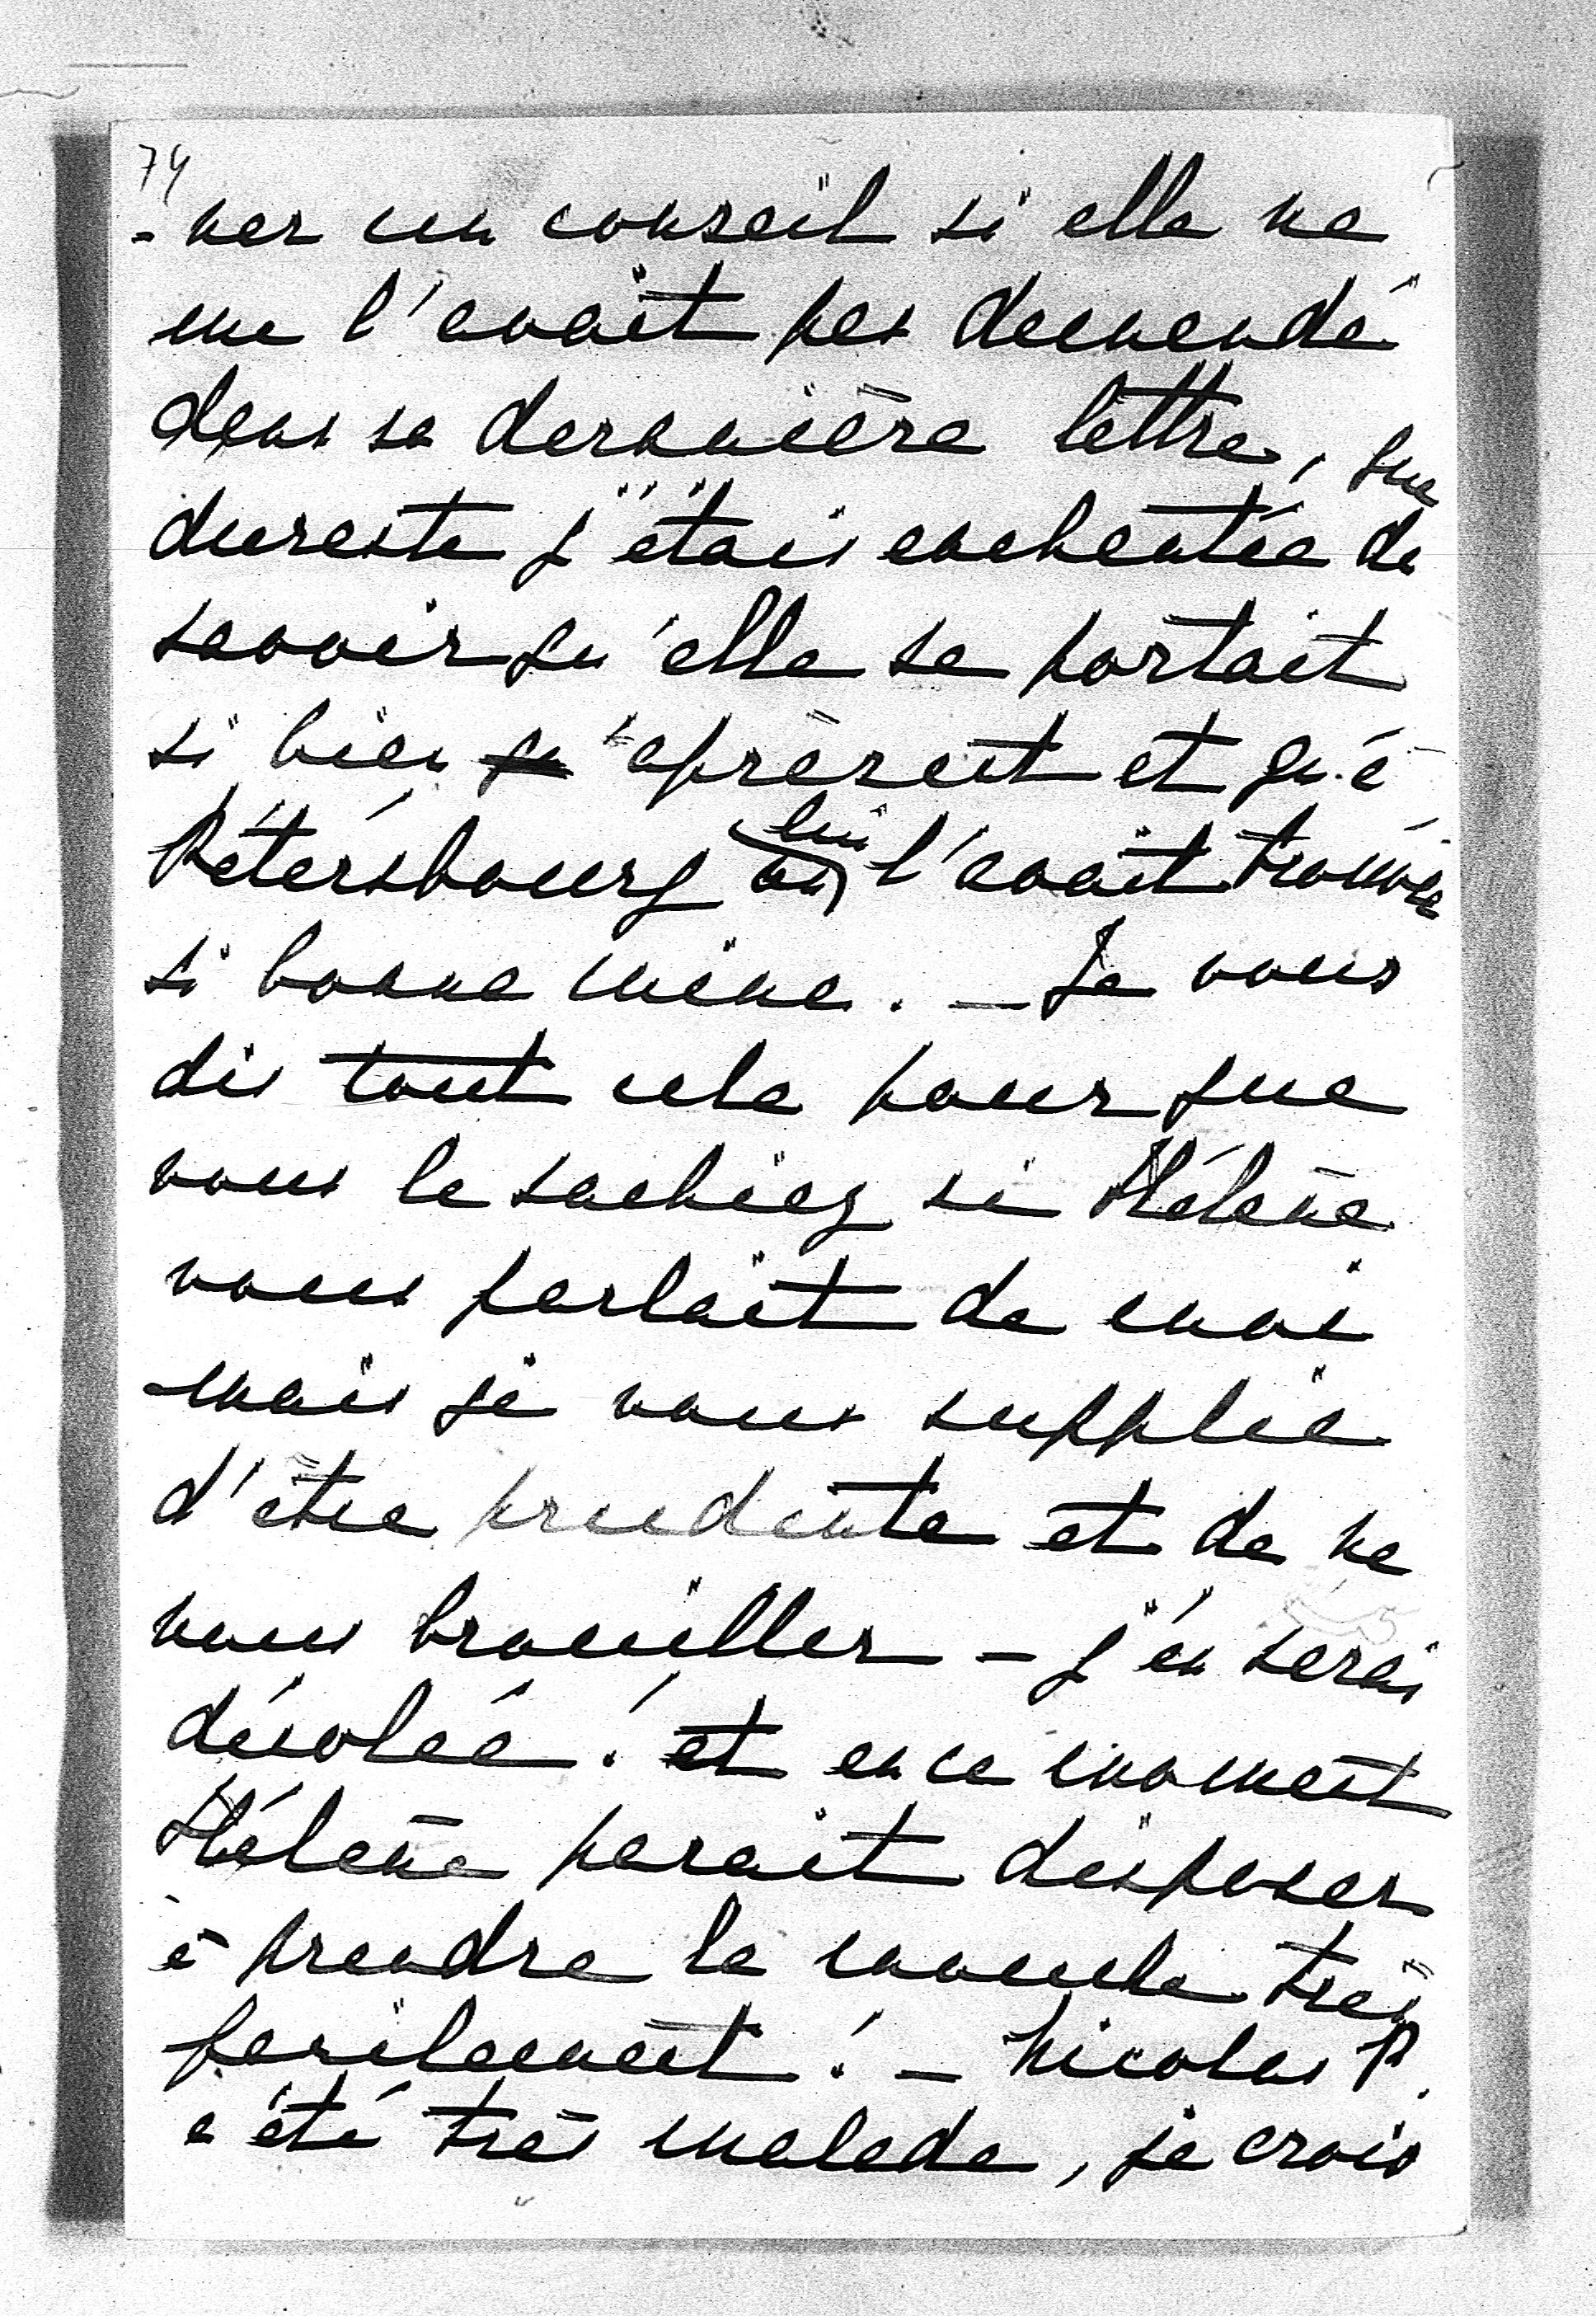 74
-ner un conseil si elle ne
me l'avait pas demandé
dans sa dernière lettre, que
dureste j'étais enchantée de
savoir qu'elle se portait
si bien qu' aprèsent et qu'à
Pétersbourg on lui l'avait trouvée
si bonne mine. – Je vous
dis tout cela pour que
vous le sachiez si Hélène
vous parlait de moi
mais je vous supplie
d'être prudente et de ne
nous brouiller – j'en serai
désolée! et en ce moment
Hélène parait disposer
à prendre la mouche très
facilement! – Nicolas P.
a été très malade, je crois